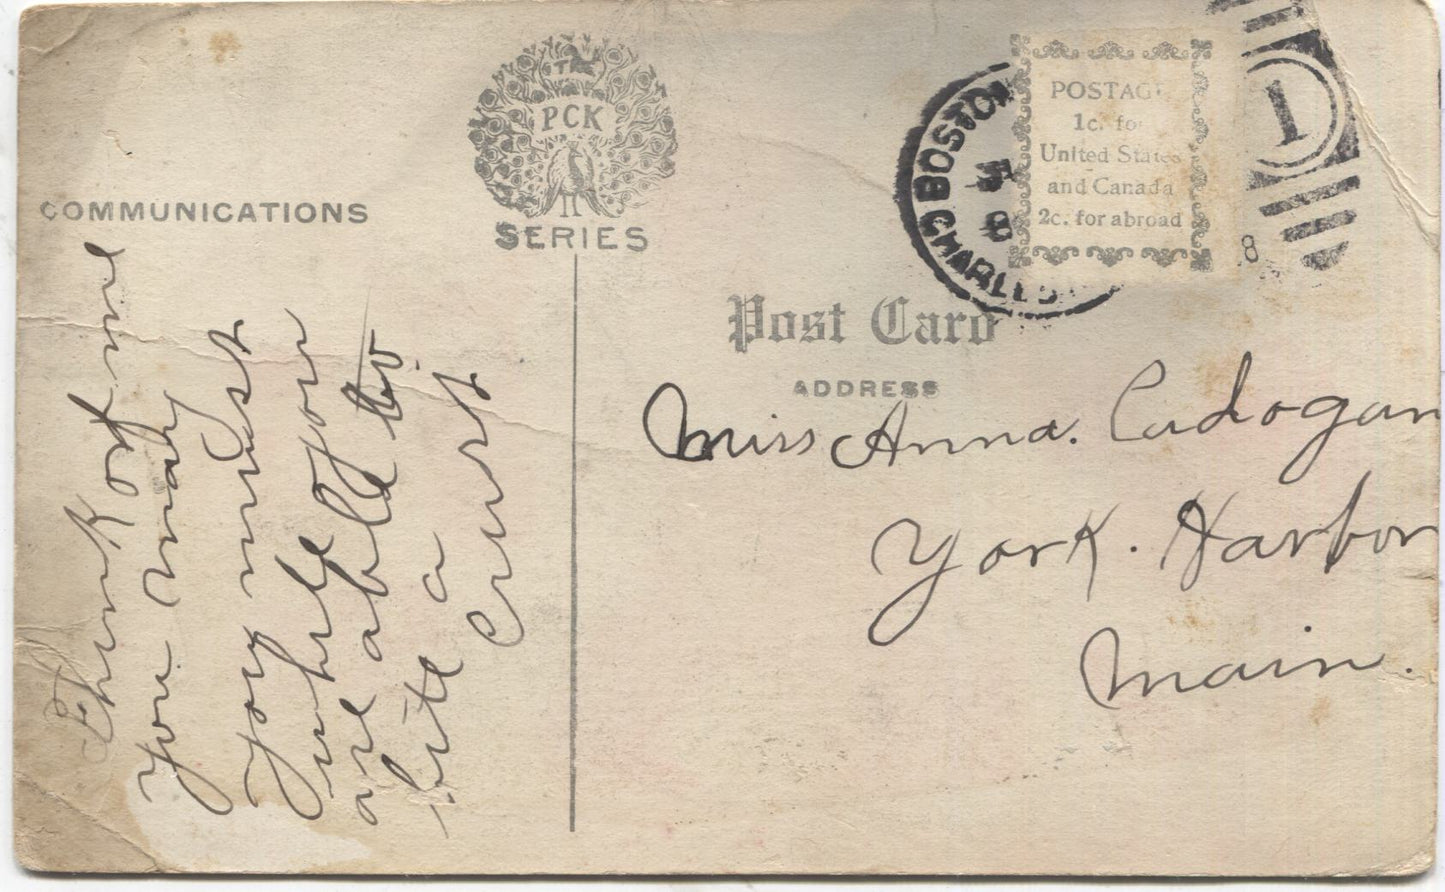 THE
PCK
SERIES
COMMUNICATIONS
Think of me
you may
you must
while you
are able to
bite a
crust
BOSTON
CHARLES
8
POSTAGE
1c. for
United States
and Canada
2c. for abroad
1
8
Post Card
ADDRESS
Miss Anna. Cadogan
York. Harbor
Main.